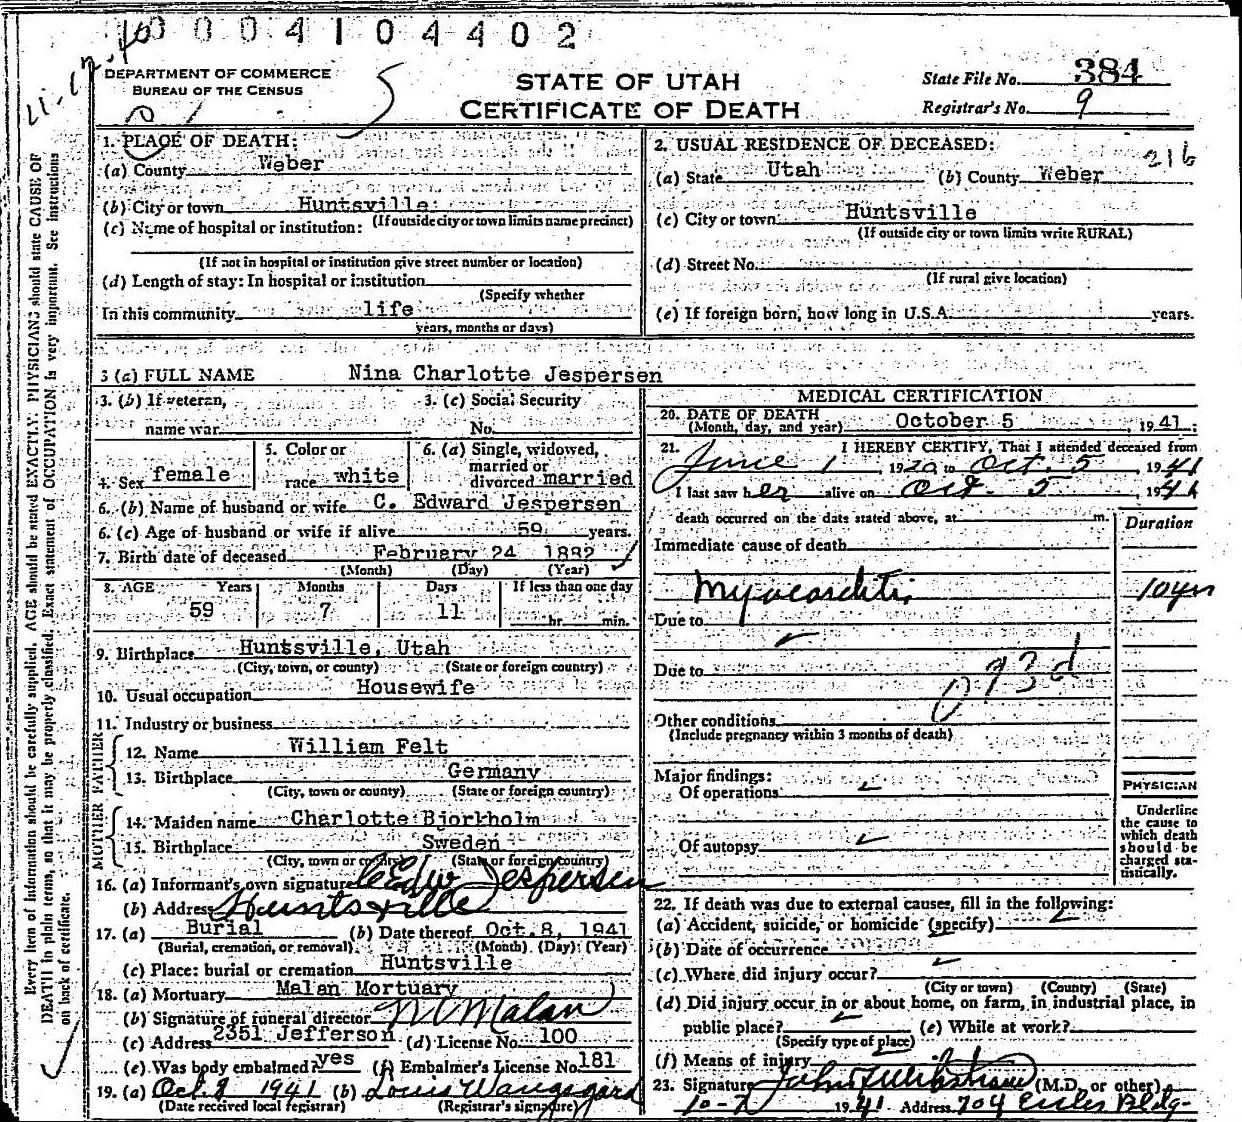 0004104402
DEPARTMENT OF COMMERCE
BUREAU OF THE CENSUS
STATE OF UTAH
CERTIFICATE OF DEATH
State File No. 384
Registrar's No. 9
Every item of information should be carefully supplied. AGE should be stated EXACTLY. PHYSICIANS should state CAUSE OF
DEATH in plain terms, so that it may be properly classified. Exact statement of OCCUPATION is very important. See instructions
on back of certificate.
1. PLACE OF DEATH:
(a) County Weber
(b) City or town Huntsville
(If outside city or town limits name precinct)
(c) Name of hospital or institution:
(If not in hospital or institution give street number or location)
(d) Length of stay: In hospital or institution
(Specify whether
In this community life
years, months or days)
2. USUAL RESIDENCE OF DECEASED:
216
(a) State Utah (b) County Weber
(c) City or town Huntsville
(If outside city or town limits write RURAL)
(d) Street No.
(If rural give location)
(e) If foreign born, how long in U.S.A. years.
3 (a) FULL NAME Nina Charlotte Jespersen
3. (b) If veteran, name war
3. (c) Social Security No.
4. Sex female
5. Color or race white
6. (a) Single, widowed, married or divorced married
6. (b) Name of husband or wife C. Edward Jespersen
6. (c) Age of husband or wife if alive 59 years.
7. Birth date of deceased February 24 1882
(Month) (Day) (Year)
8. AGE Years Months Days If less than one day
59 7 11 hr. min.
9. Birthplace Huntsville, Utah
(City, town, or county) (State or foreign country)
10. Usual occupation Housewife
11. Industry or business
FATHER
12. Name William Felt
13. Birthplace Germany
(City, town or county) (State or foreign country)
MOTHER
14. Maiden name Charlotte Bjorkholm
15. Birthplace Sweden
(City, town or county) (State or foreign country)
16. (a) Informant's own signature C Edw Jespersen
(b) Address Huntsville
17. (a) Burial (b) Date thereof Oct. 8, 1941
(Burial, cremation, or removal) (Month) (Day) (Year)
(c) Place: burial or cremation Huntsville
18. (a) Mortuary Malan Mortuary
(b) Signature of funeral director Malan
(c) Address 2351 Jefferson (d) License No. 100
(e) Was body embalmed? yes (f) Embalmer's License No. 181
19. (a) Oct. 8 1941 (b) Louis Wangsgard
(Date received local registrar) (Registrar's signature)
MEDICAL CERTIFICATION
20. DATE OF DEATH
(Month, day, and year) October 5, 1941
21. I HEREBY CERTIFY, That I attended deceased from
June 1 1920 to Oct. 5, 1941
I last saw her alive on Oct. 5, 1941
death occurred on the date stated above, at m.
Duration
Immediate cause of death
Myocarditis 10 yrs
Due to
Due to
093d
Other conditions
(Include pregnancy within 3 months of death)
Major findings:
Of operations
Of autopsy
PHYSICIAN
Underline
the cause to
which death
should be
charged sta-
tistically.
22. If death was due to external causes, fill in the following:
(a) Accident, suicide, or homicide (specify)
(b) Date of occurrence
(c) Where did injury occur?
(City or town) (County) (State)
(d) Did injury occur in or about home, on farm, in industrial place, in
public place? (e) While at work?
(Specify type of place)
(f) Means of injury
23. Signature John (M.D. or other)
10-7 1941 Address 704 Eccles Bldg-